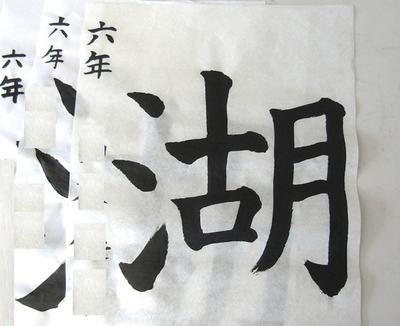 湖
六年
六年
六年